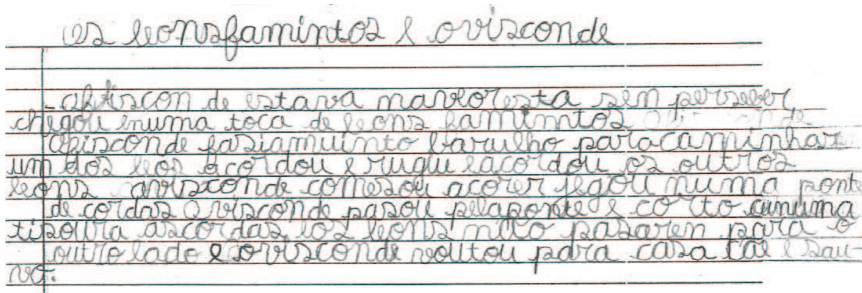 os leonsfamintos e ovisconde
oviscon de estava navloresta sen perseber
chegou enuma toca de leons famintos
ovisconde fasiamuinto barulho paracaminhar
um dos leos acordou e rugiu eacordou os outros
leons ovisconde comesou acorer jegou numa ponte
de cordas o visconde pasou pelaponte e co rto cunuma
tisoura ascordas eos leons não pasaren para o
outro lado e ovisconde voltou para casa sau-
vo.